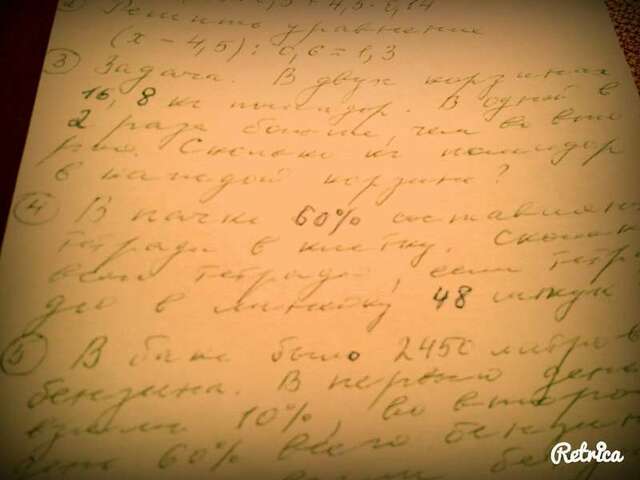 Решить уравнение
(х - 4,5) : 0,6 = 1,3
③ Задача. В двух корзинах
16,8 кг помидор. В одной в
2 раза больше, чем во вто
рой. Сколько кг помидор
в каждой корзине?
④ В пачке 60% составляют
тетради в клетку. Сколько
всего тетрадей, если тетра
дей в линейку 48 штук
⑤ В баке было 2450 литров
бензина. В первый день
взяли 10%, во второй
день 60% всего бензин
Retrica